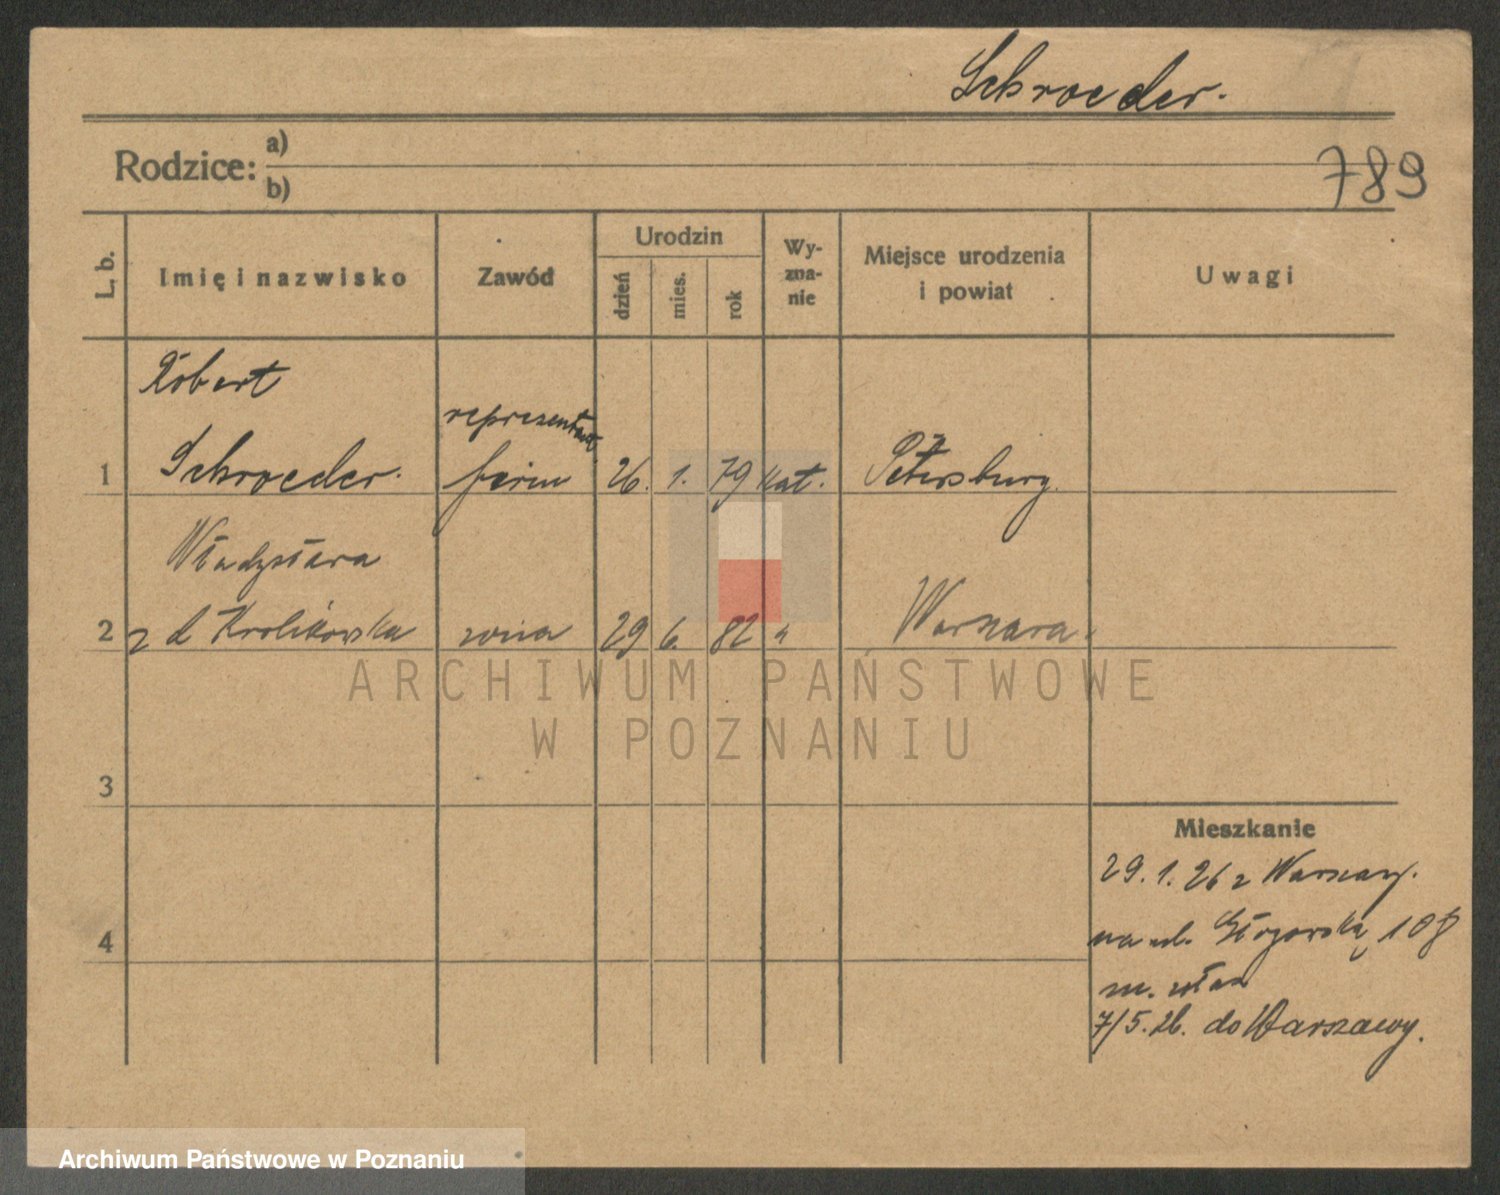 Schroeder.
Rodzice: a)
b)
789
L. b.
Imię i nazwisko
Zawód
Urodzin
dzień
mies.
rok
Wy-
zna-
nie
Miejsce urodzenia
i powiat
Uwagi
Robert
reprezentant
1 Schroeder. firm 26. 1. 79 kat. Petersburg.
Władysława
2 z d Krolikowska żona 29 6. 82 " Warszawa.
ARCHIWUM PAŃSTWOWE
W POZNANIU
3
Mieszkanie
29.1.26 z Warszawy.
4
na ul. Głogowską 108
m. włas
7/5.26. do Warszawy.
Archiwum Państwowe w Poznaniu